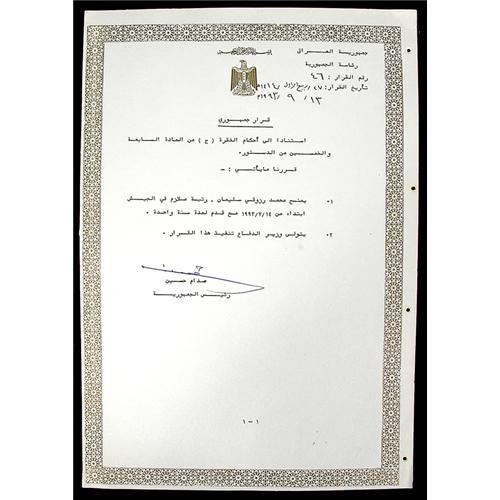 بسم الله الرحمن الرحيم
جمهورية العراق
رئاسة الجمهورية
رقم القرار : ٤٦
تأريخ القرار : ٢٧/ربيع الاول/١٤١٤هـ
١٣/٩/١٩٩٣م
قرار جمهوري
استنادا الى أحكام الفقرة (ج) من المادة السابعة
والخمسين من الدستور٠
قررنا مايأتي : -
١٠ يمنح محمد رزوقي سليمان ٬ رتبة ملازم في الجيش
ابتداء من ١٩٩٣/٧/١٤ مع قدم لمدة سنة واحدة ٠
٢٠ يتولى وزير الدفاع تنفيذ هذا القرار ٠
صدام حسين
رئيس الجمهورية
١ - ١